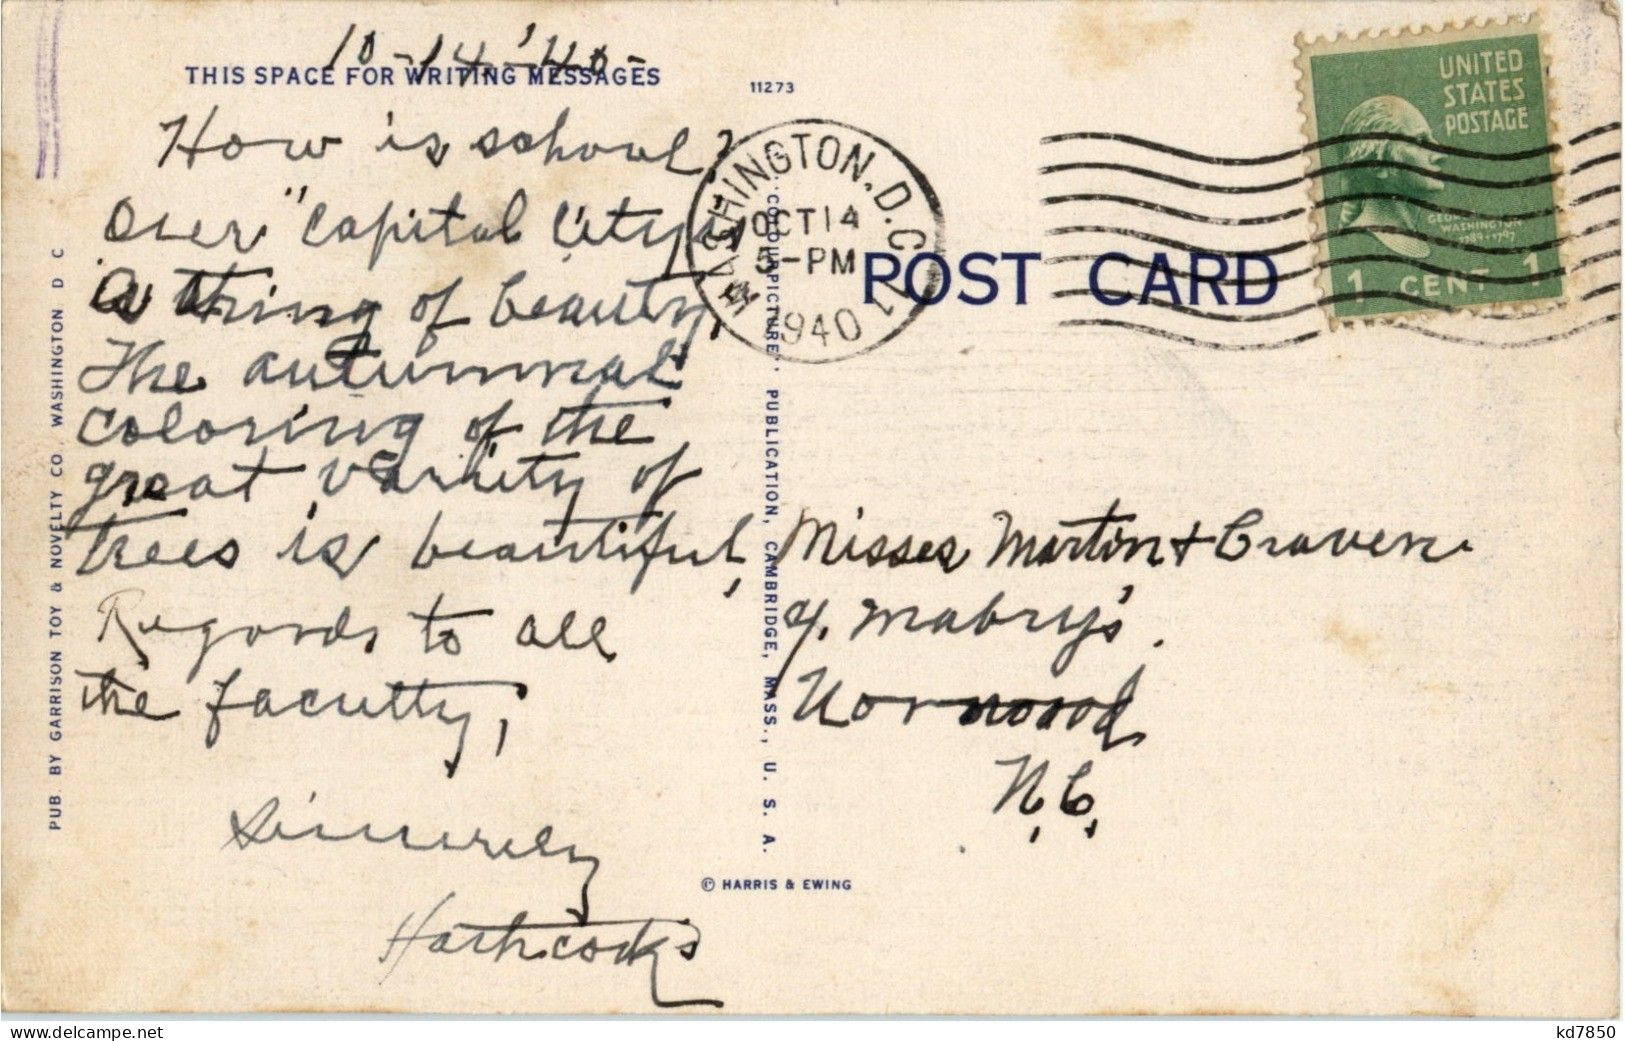 10-14-'40-
THIS SPACE FOR WRITING MESSAGES
How is school?
Over "Capital City" is
a thing of beauty,
The autumnal
coloring of the
great variety of
trees is beautiful,
Regards to all
the faculty,
Sincerely
Hathcock's
PUB. BY GARRISON TOY & NOVELTY CO. WASHINGTON D C
11273
"COLOURPICTURE" PUBLICATION, CAMBRIDGE, MASS., U. S. A.
© HARRIS & EWING
WASHINGTON, D.C. 11
OCT 14
5-PM
1940
POST CARD
UNITED
STATES
POSTAGE
GEORGE
WASHINGTON
1789-1797
1 CENT 1
Misses Martin & Craven
℅ Mabry's.
Norwood
N.C.
kd7850